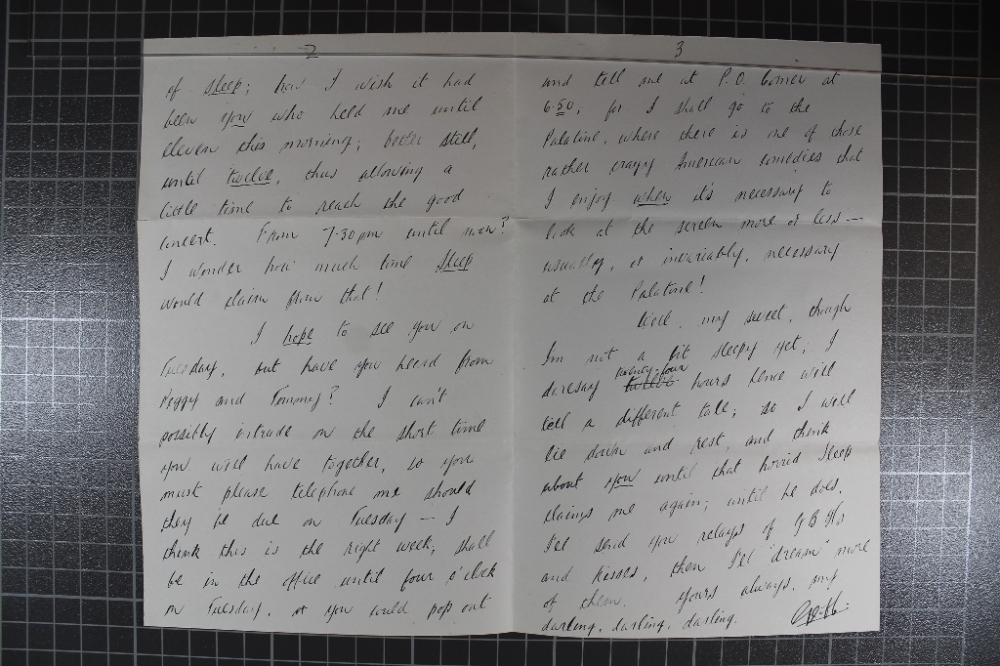 2
of sleep; how I wish it had
been you who held me until
eleven this morning; better still,
until twelve, thus allowing a
little time to reach the good
concert. From 7.30 pm until noon?
I wonder how much time sleep
would claim from that!
I hope to see you on
Tuesday, but have you heard from
Peggy and Tommy? I can't
possibly intrude on the short time
you will have together, so you
must please telephone me should
they be due on Tuesday — I
think this is the right week; shall
be in the office until four o'clock
on Tuesday, or you could pop out
3
and tell me at P.O. Corner at
6.50, for I shall go to the
Palatine, where there is one of those
rather crazy American comedies that
I enjoy when it's necessary to
look at the screen more or less —
usually, or invariably, necessary
at the Palatine!
Well, my sweet, though
I'm not a bit sleepy yet, I
daresay twenty-four twelve hours hence will
tell a different tale; so I will
lie down and rest, and think
about you until that horrid sleep
claims me again; until he does,
I'll send you relays of GBHs
and kisses, then I'll "dream" more
of them. Yours always, my
darling, darling, darling.